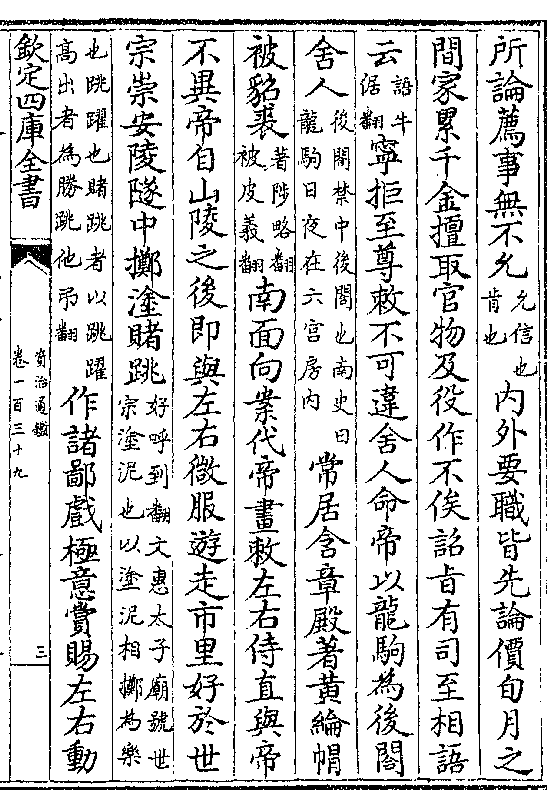 所論薦事無不允允信也肯也內外要職皆先論價旬月之
間家累千金擅取官物及役作不俟詔旨有司至相語
云語牛倨翻寧拒至尊敕不可違舍人命帝以龍駒為後閤
舍人後閤禁中後閤也南史曰龍駒日夜在六宮房內常居含章殿著黃綸帽
被貂裘著陟略翻被皮義翻南面向案代帝畫敕左右侍直與帝
不異帝自山陵之後即與左右微服遊走市里好於世
宗崇安陵隧中擲塗賭跳好呼到翻文惠太子廟號世宗塗泥也以塗泥相擲為樂
也跳躍也賭跳者以跳躍高出者為勝跳他弔翻作諸鄙戲極意賞賜左右動
欽定四庫全書
資治通鑑
卷一百三十九
三